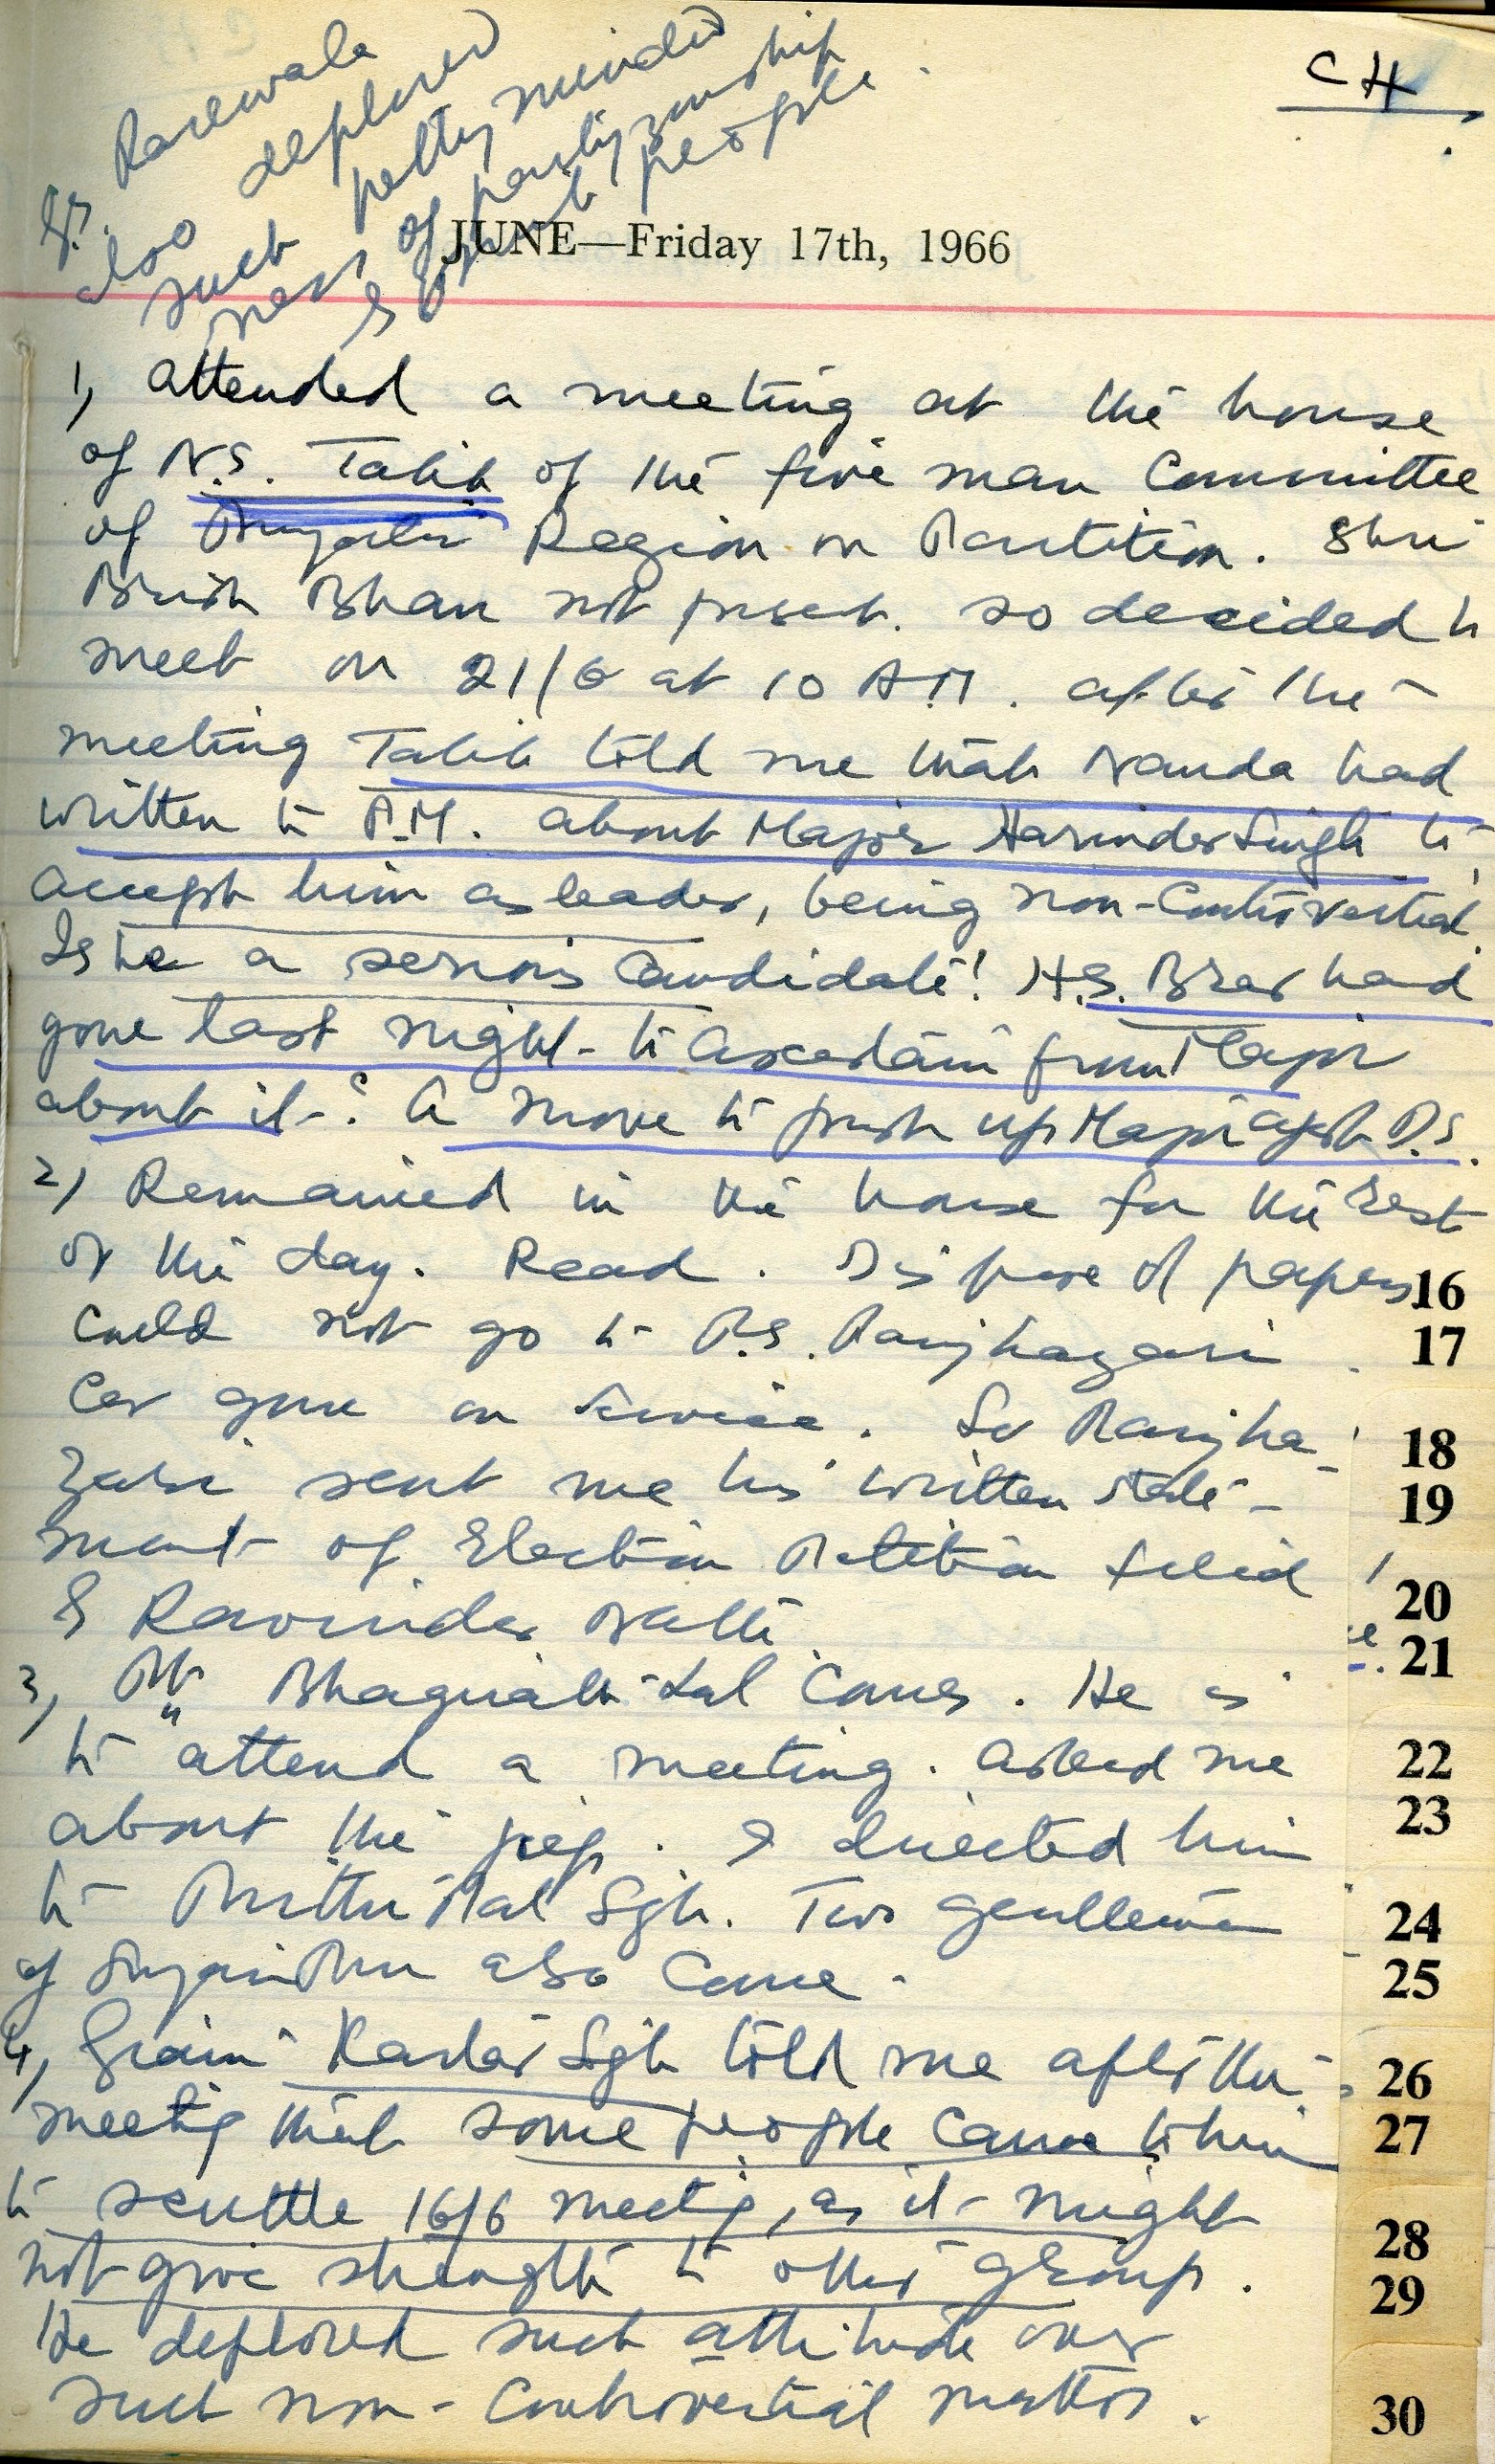 CH
Rarewala
also deplored
such petty minded
ness of partizanship
& people
JUNE—Friday 17th, 1966
1, Attended a meeting at the house
of N.S. Talib of the five man Committee
of Region on Partition. Shri
Brish Bhan not present. so decided to
meet on 21/6 at 10 A.M. after the
meeting Talib told me that Nanda had
written to P.M. about Major Harinder Singh to
accept him as leader, being non-controvertial.
Is he a serious candidate! H.S. Brar had
gone last night to ascertain from Major
about it. A move to push up Major agst D.S.
2, Remained in the house for the rest
of the day. Read. Dispose of papers
Could not go to P.S. Panjhazari
Car gone on Service. So Panjha-
zari sent me his written state-
ment of Election Petition filed
& Ravinder
3, Pt. Lal Comes. He is
to attend a meeting. asked me
about the jeep. I directed him
to Pal Sgh. Two gentlemen
of also came.
4, Giani Kartar Sgh told me after the
meeting that some people came to him
to scuttle 16/6 meeting, as it might
not give strength to other group.
He deplored such attitude over
such non-controvertial matter.
16
17
18
19
20
21
22
23
24
25
26
27
28
29
30